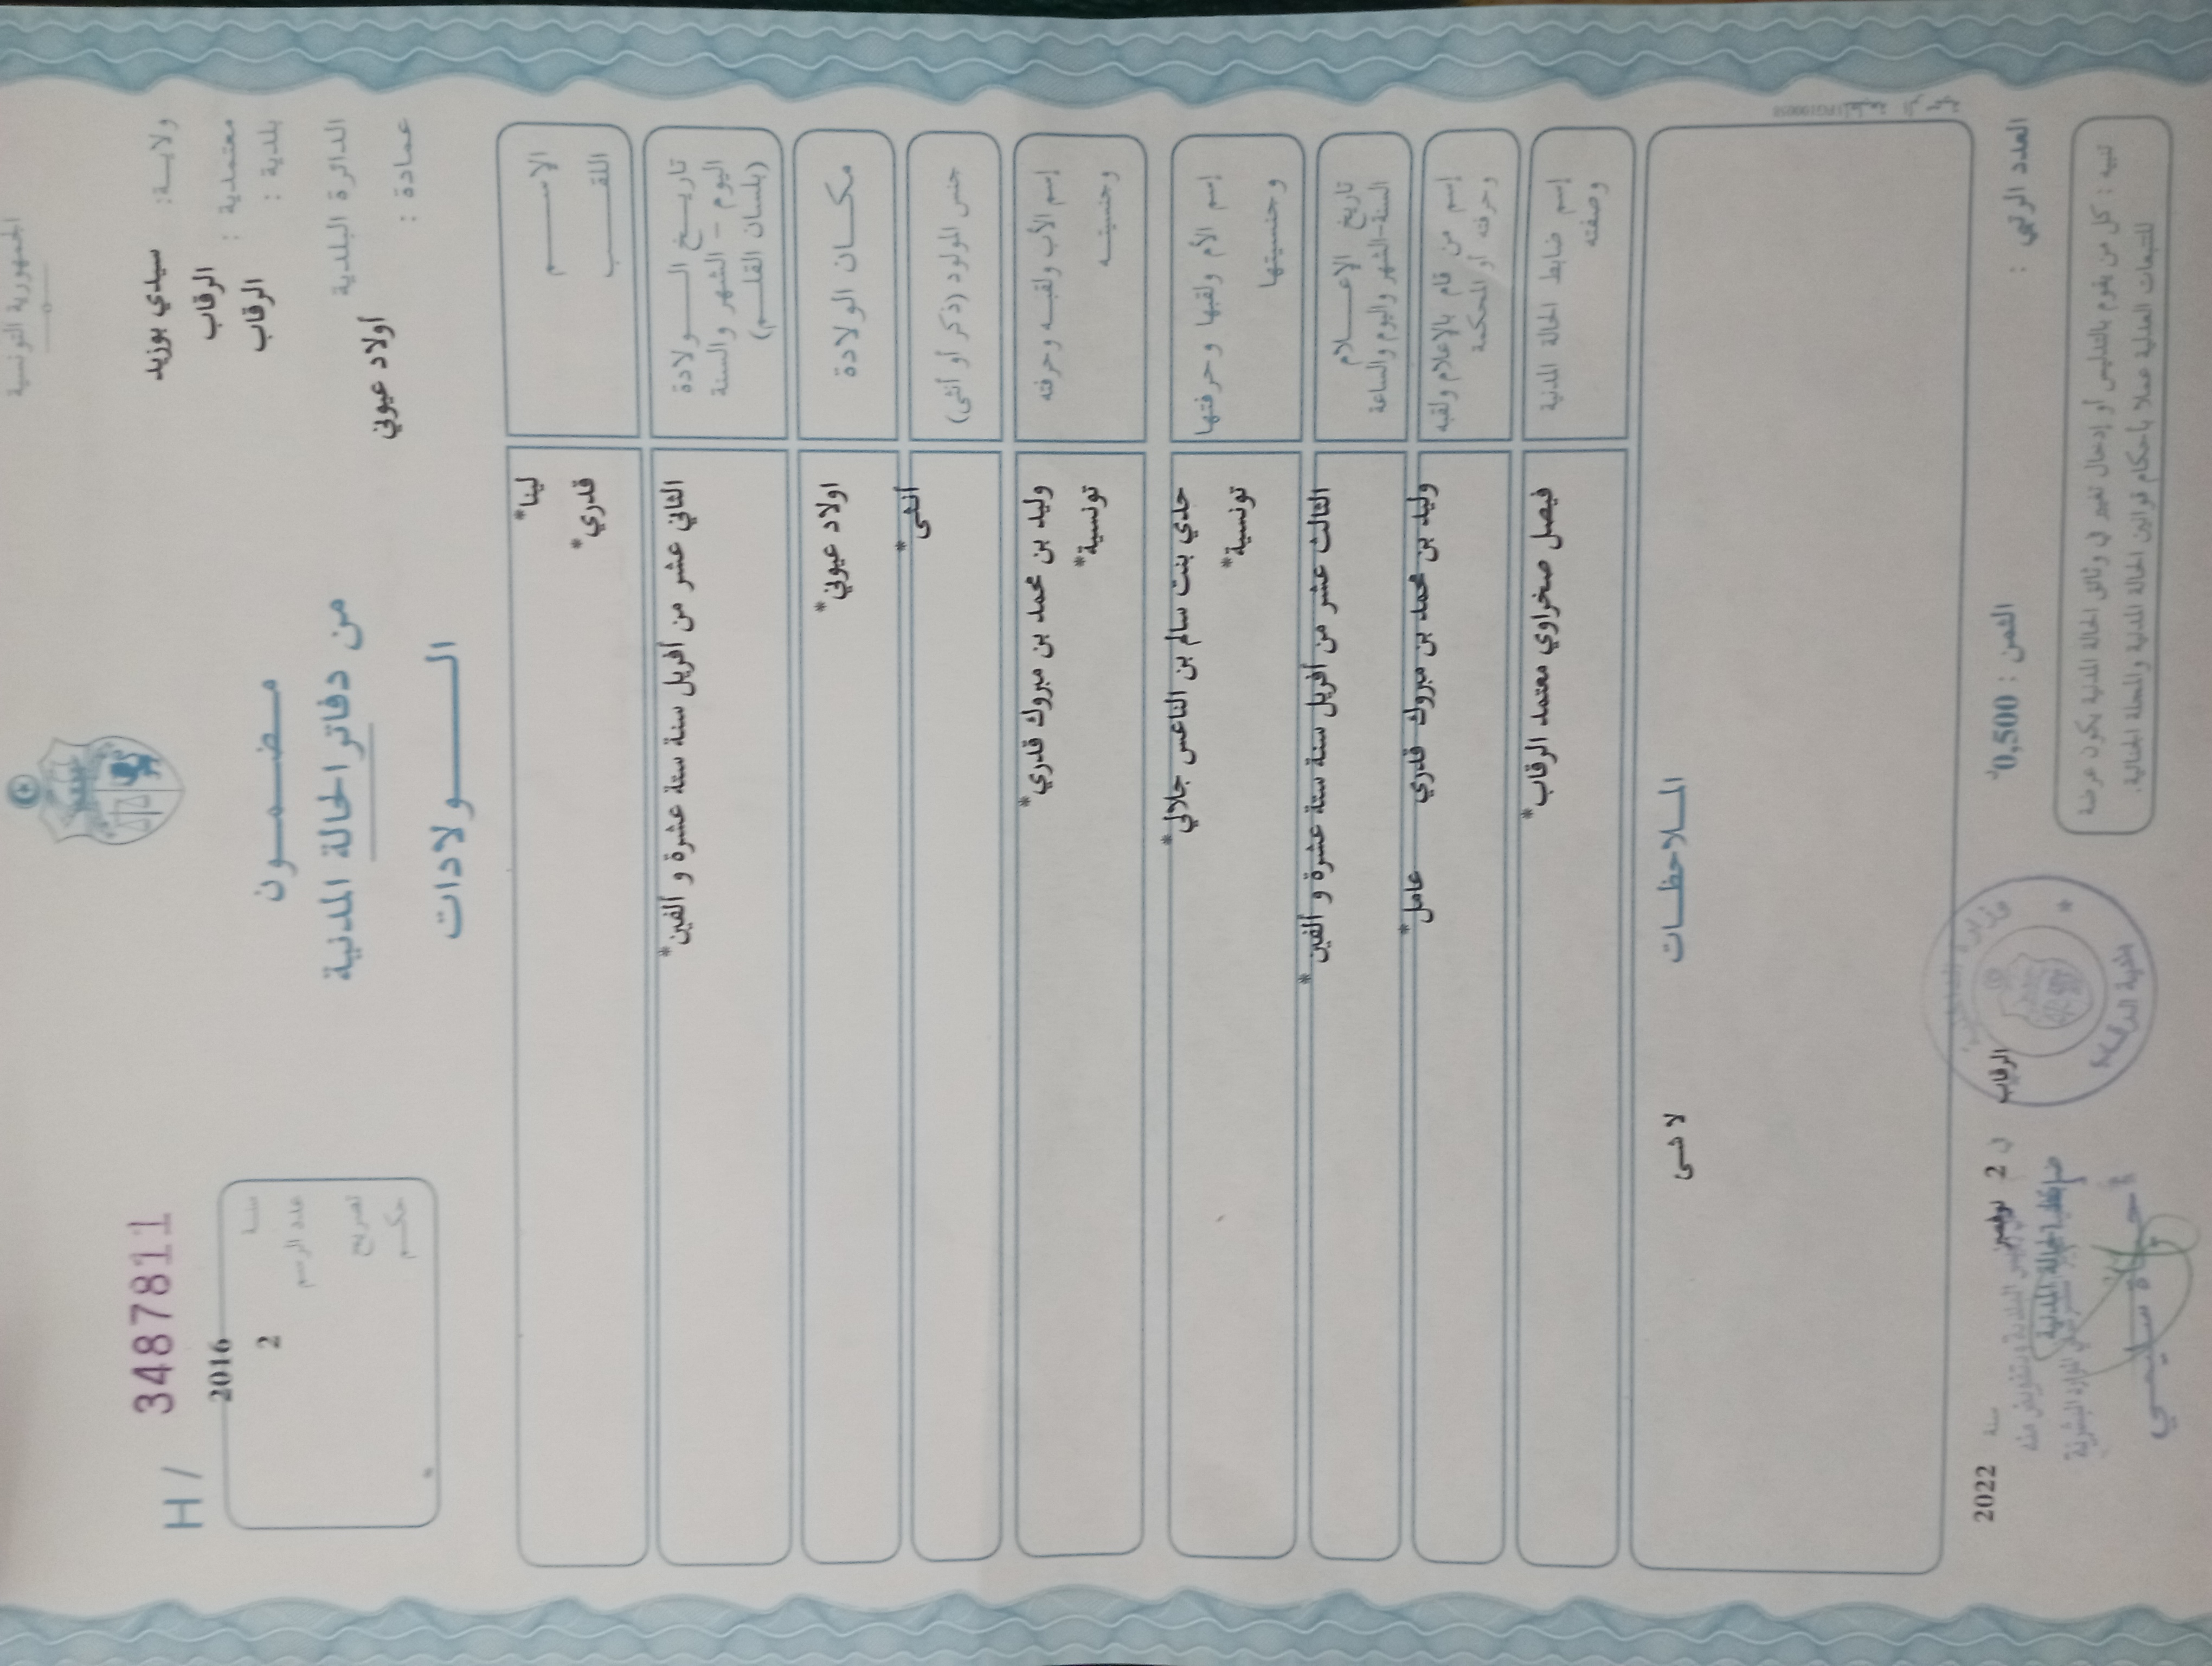 الجمهورية التونسية
ولايـــة: سيدي بوزيد
معتمدية : الرقاب
بلدية : الرقاب
الدائرة البلدية
عمادة : أولاد عيوني
H / 3487811
سنـة 2016
عدد الرسم 2
تصريح
حكـم
مـضـمـــون
من دفاتر الحالة المدنية
الـــــــولادات
الاســــــم لينا*
اللقـــــب قدري*
تاريـــخ الــــــولادة
اليوم - الشهر والسنة
(بلسان القلـــم)
الثاني عشر من أفريل سنة ستة عشرة و ألفين*
مكـــان الولادة اولاد عيوني*
جنس المولود (ذكر أو أنثى) أنثى*
إسم الأب ولقبـــه وحرفته وليد بن محمد بن مبروك قدري*
وجنسيتـــه تونسية*
إسم الأم ولقبها وحرفتها حدي بنت سالم بن الناعس جلالي*
وجنسيتها تونسية*
تاريخ الإعـــــلام
السنة-الشهر واليوم والساعة
الثالث عشر من أفريل سنة ستة عشرة و ألفين*
إسم من قام بالإعلام ولقبه
وحرفته أو المحكمة
وليد بن محمد بن مبروك قدري عامل*
إسم ضابط الحالة المدنية
وصفته
فيصل صخراوي معتمد الرقاب*
المـــلاحظـــات
لا شىء
العدد الرتبي :
الثمن : 0,500
الرقاب في 2 نوفمبر سنة 2022
ضابط الحالة المدنية
تنبيه : كل من يقوم بالتدليس أو إدخال تغيير في وثائق الحالة المدنية يكون عرضة
للتتبعات العدلية عملا بأحكام قوانين الحالة المدنية والمجلة الجنائية.